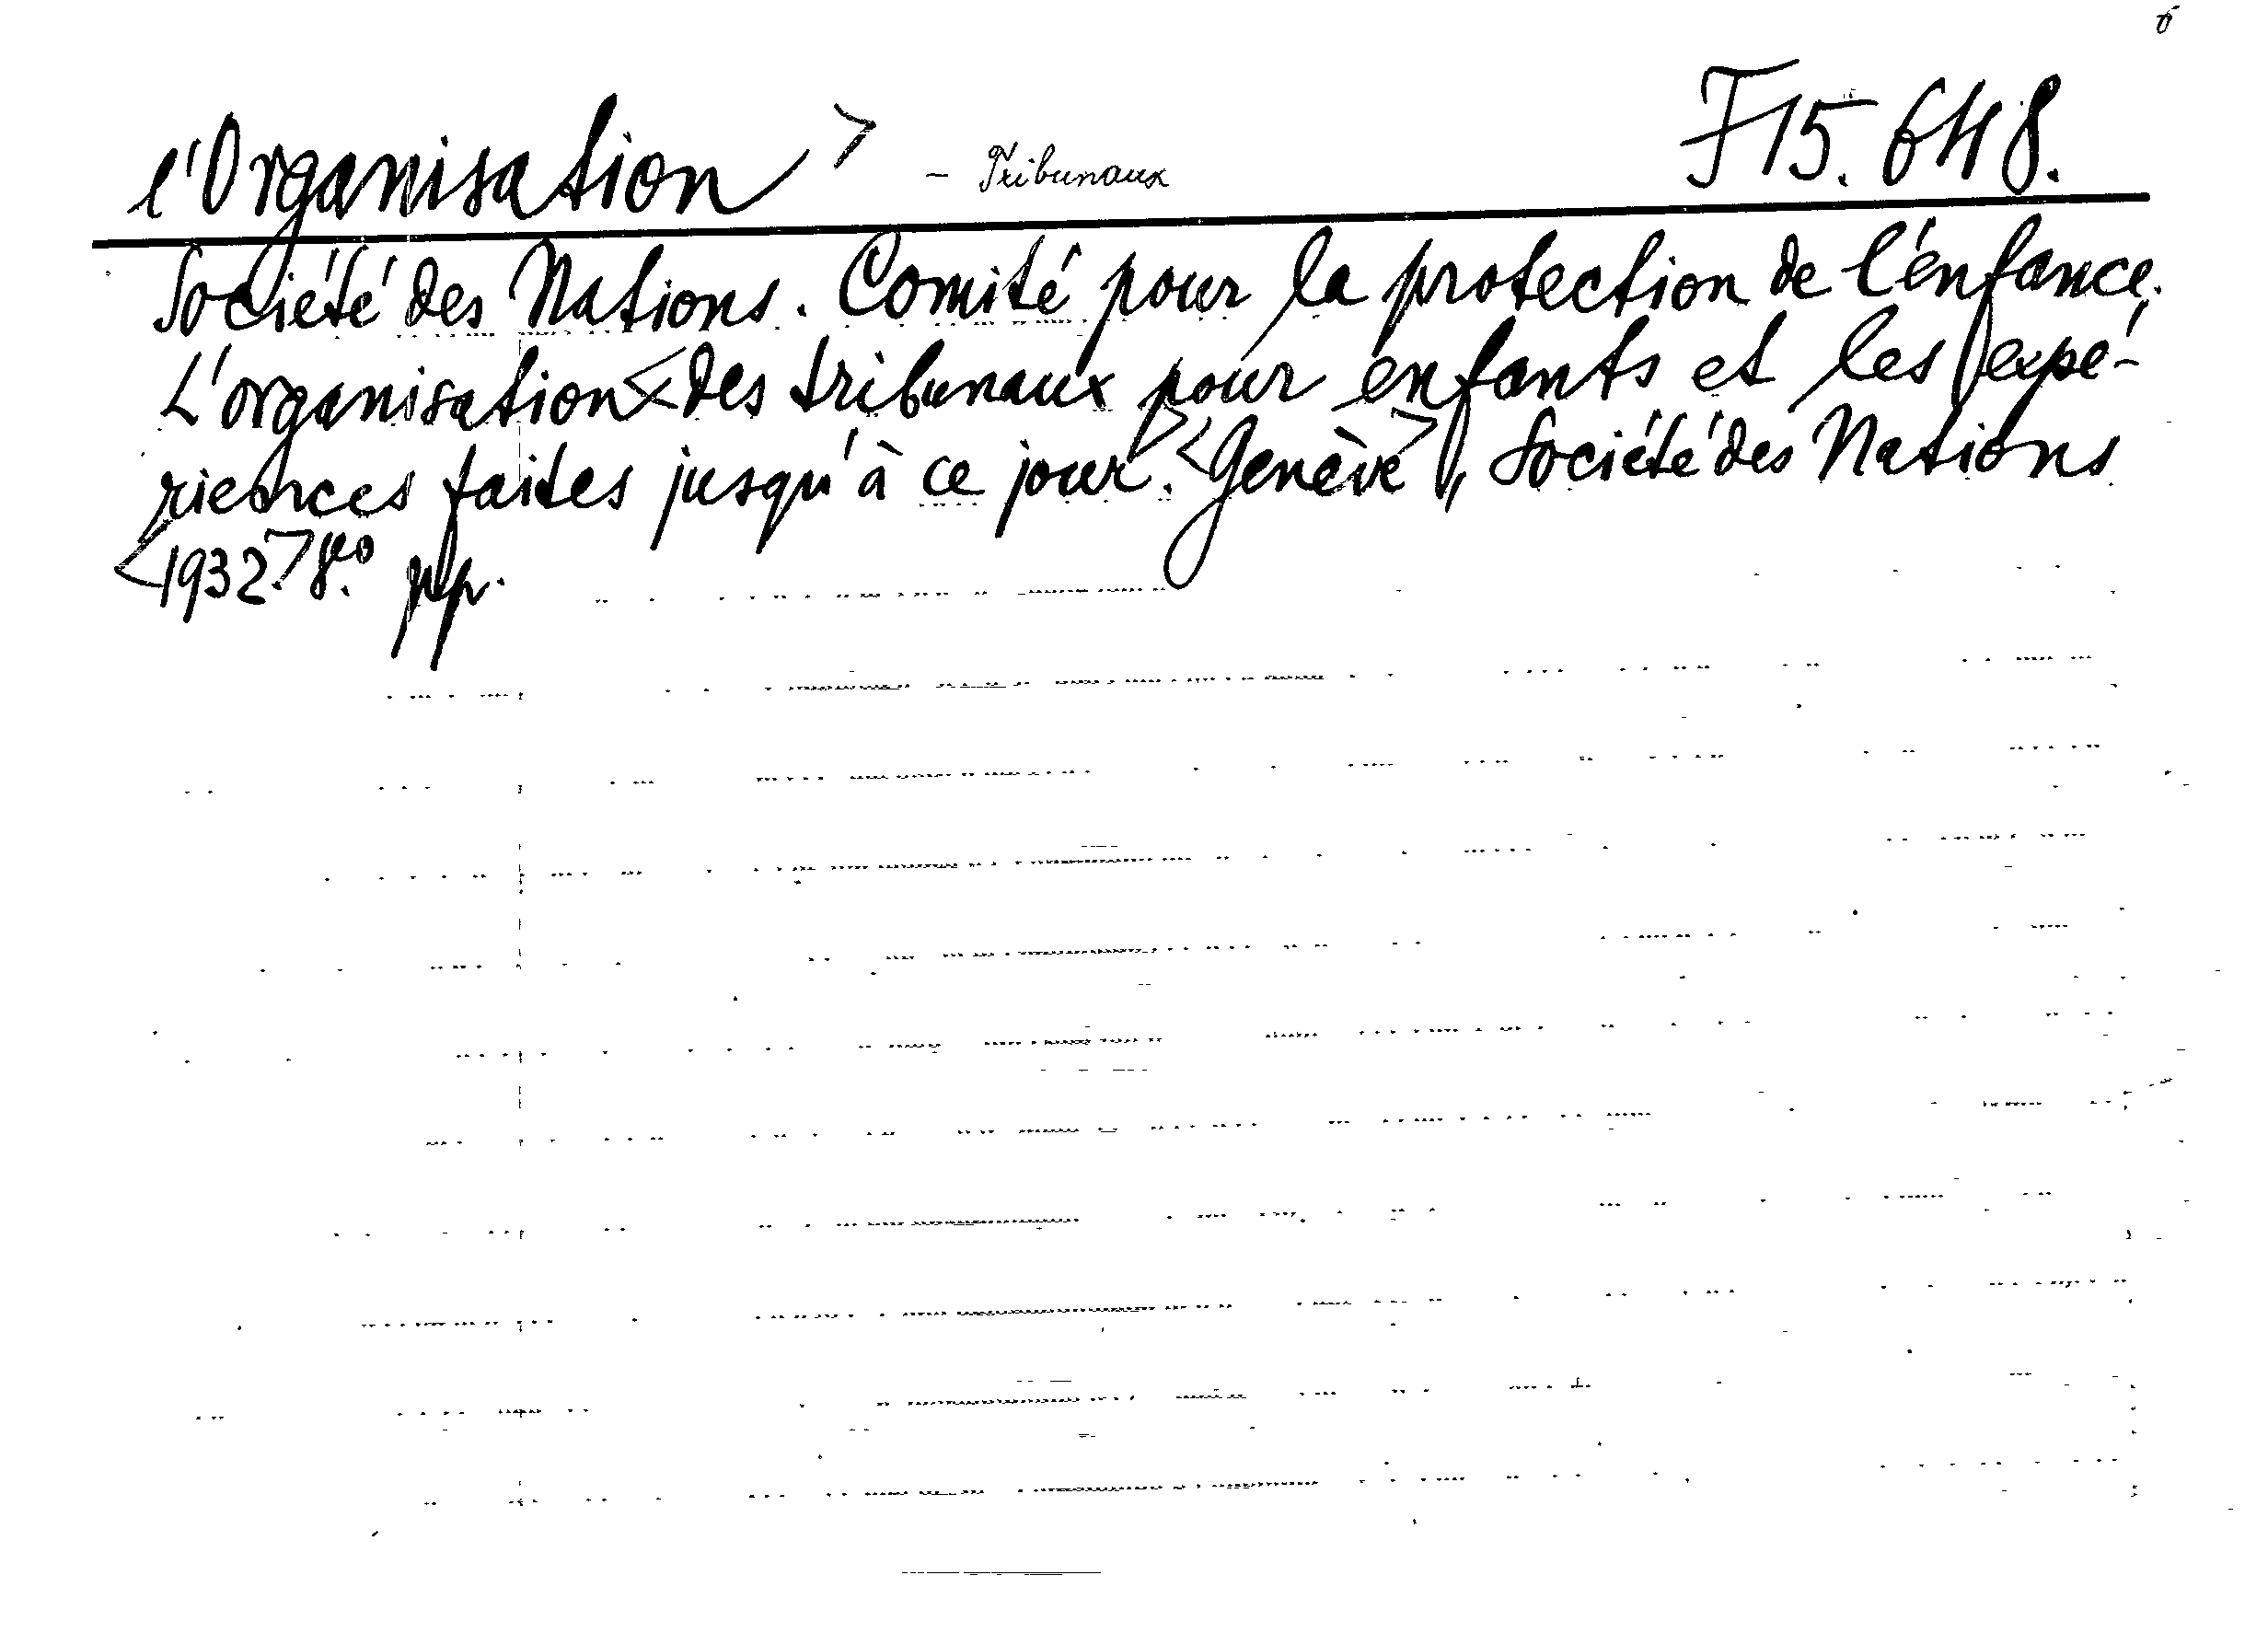 l'Organisation > – Tribunaux F15.648.
Société des Nations. Comité pour la protection de l'enfance.
L'organisation < des tribunaux pour enfants et les expé-
riences faites jusqu'à ce jour. > < Genève >, Société des Nations
< 1932. > 8vo. pp.